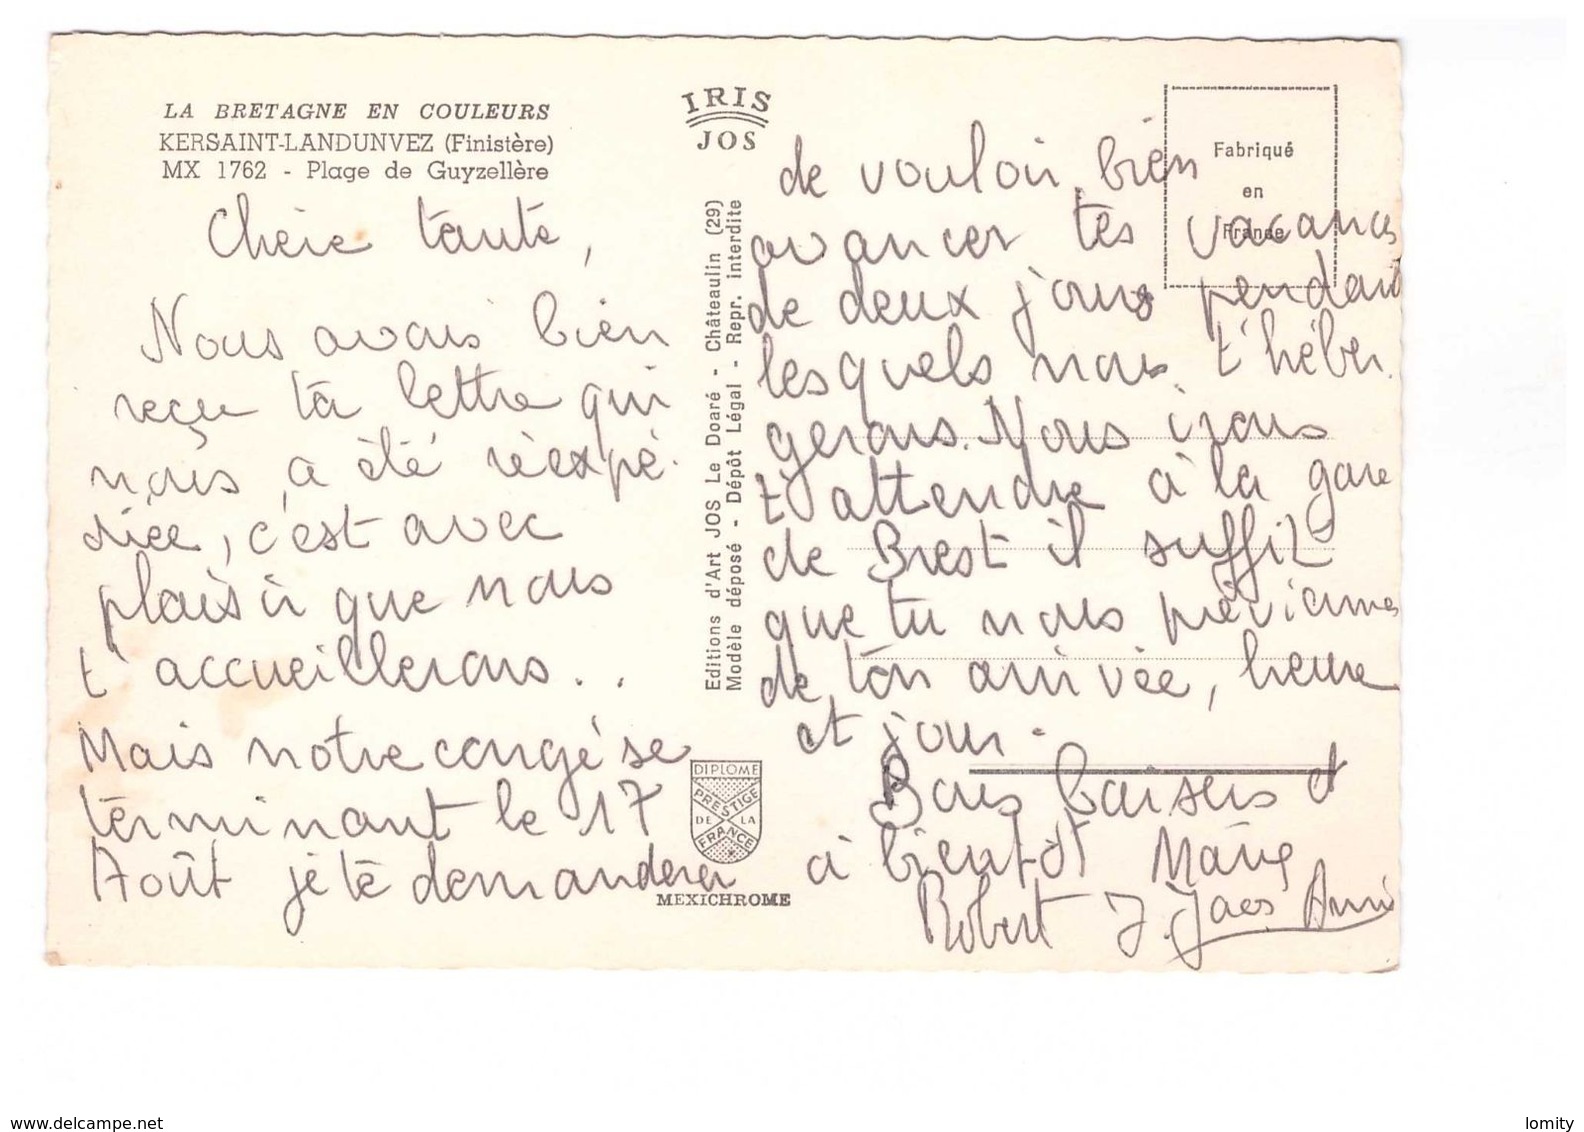 LA BRETAGNE EN COULEURS
KERSAINT-LANDUNVEZ (Finistère)
MX 1762 - Plage de Guyzellère
Chère tante,
Nous avons bien
reçu ta lettre qui
nous a été réexpé-
diée, c'est avec
plaisir que nous
t'accueillerons..
Mais notre congé se
terminant le 17
Août je te demanderai
IRIS
JOS
Editions d'Art JOS Le Doaré - Châteaulin (29)
Modèle déposé - Dépôt Légal - Repr. interdite
DIPLOME
PRESTIGE
DE LA
FRANCE
MEXICHROME
Fabriqué
en
France
de vouloir bien
avancer tes vacances
de deux jours pendant
lesquels nous t'héber-
gerons. Nous irons
t'attendre à la gare
de Brest il suffit
que tu nous préviennes
de ton arrivée, heure
et jour.
Bons baisers et
à bientôt Marie
Robert J. Yves Anni
www.delcampe.net
lomity